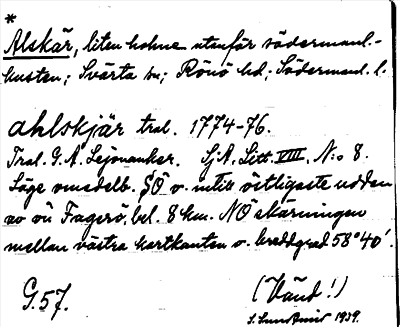 *
Alskär, liten holme utanför södermanl.-
kusten; Svärta sn; Rönö hd; Södermanl. l.
ahlskjär tral. 1774-76.
Tral. G. A. Lejonancker. SjA, Litt. VIII, N:o 8.
Läge omedelb. SÖ o. intill östligaste udden
av ön Fagerö, bel. 8 km. NÖ skärningen
mellan västra kartkanten o. breddgrad 58°40'.
G. 57. (Vänd!)
1939.